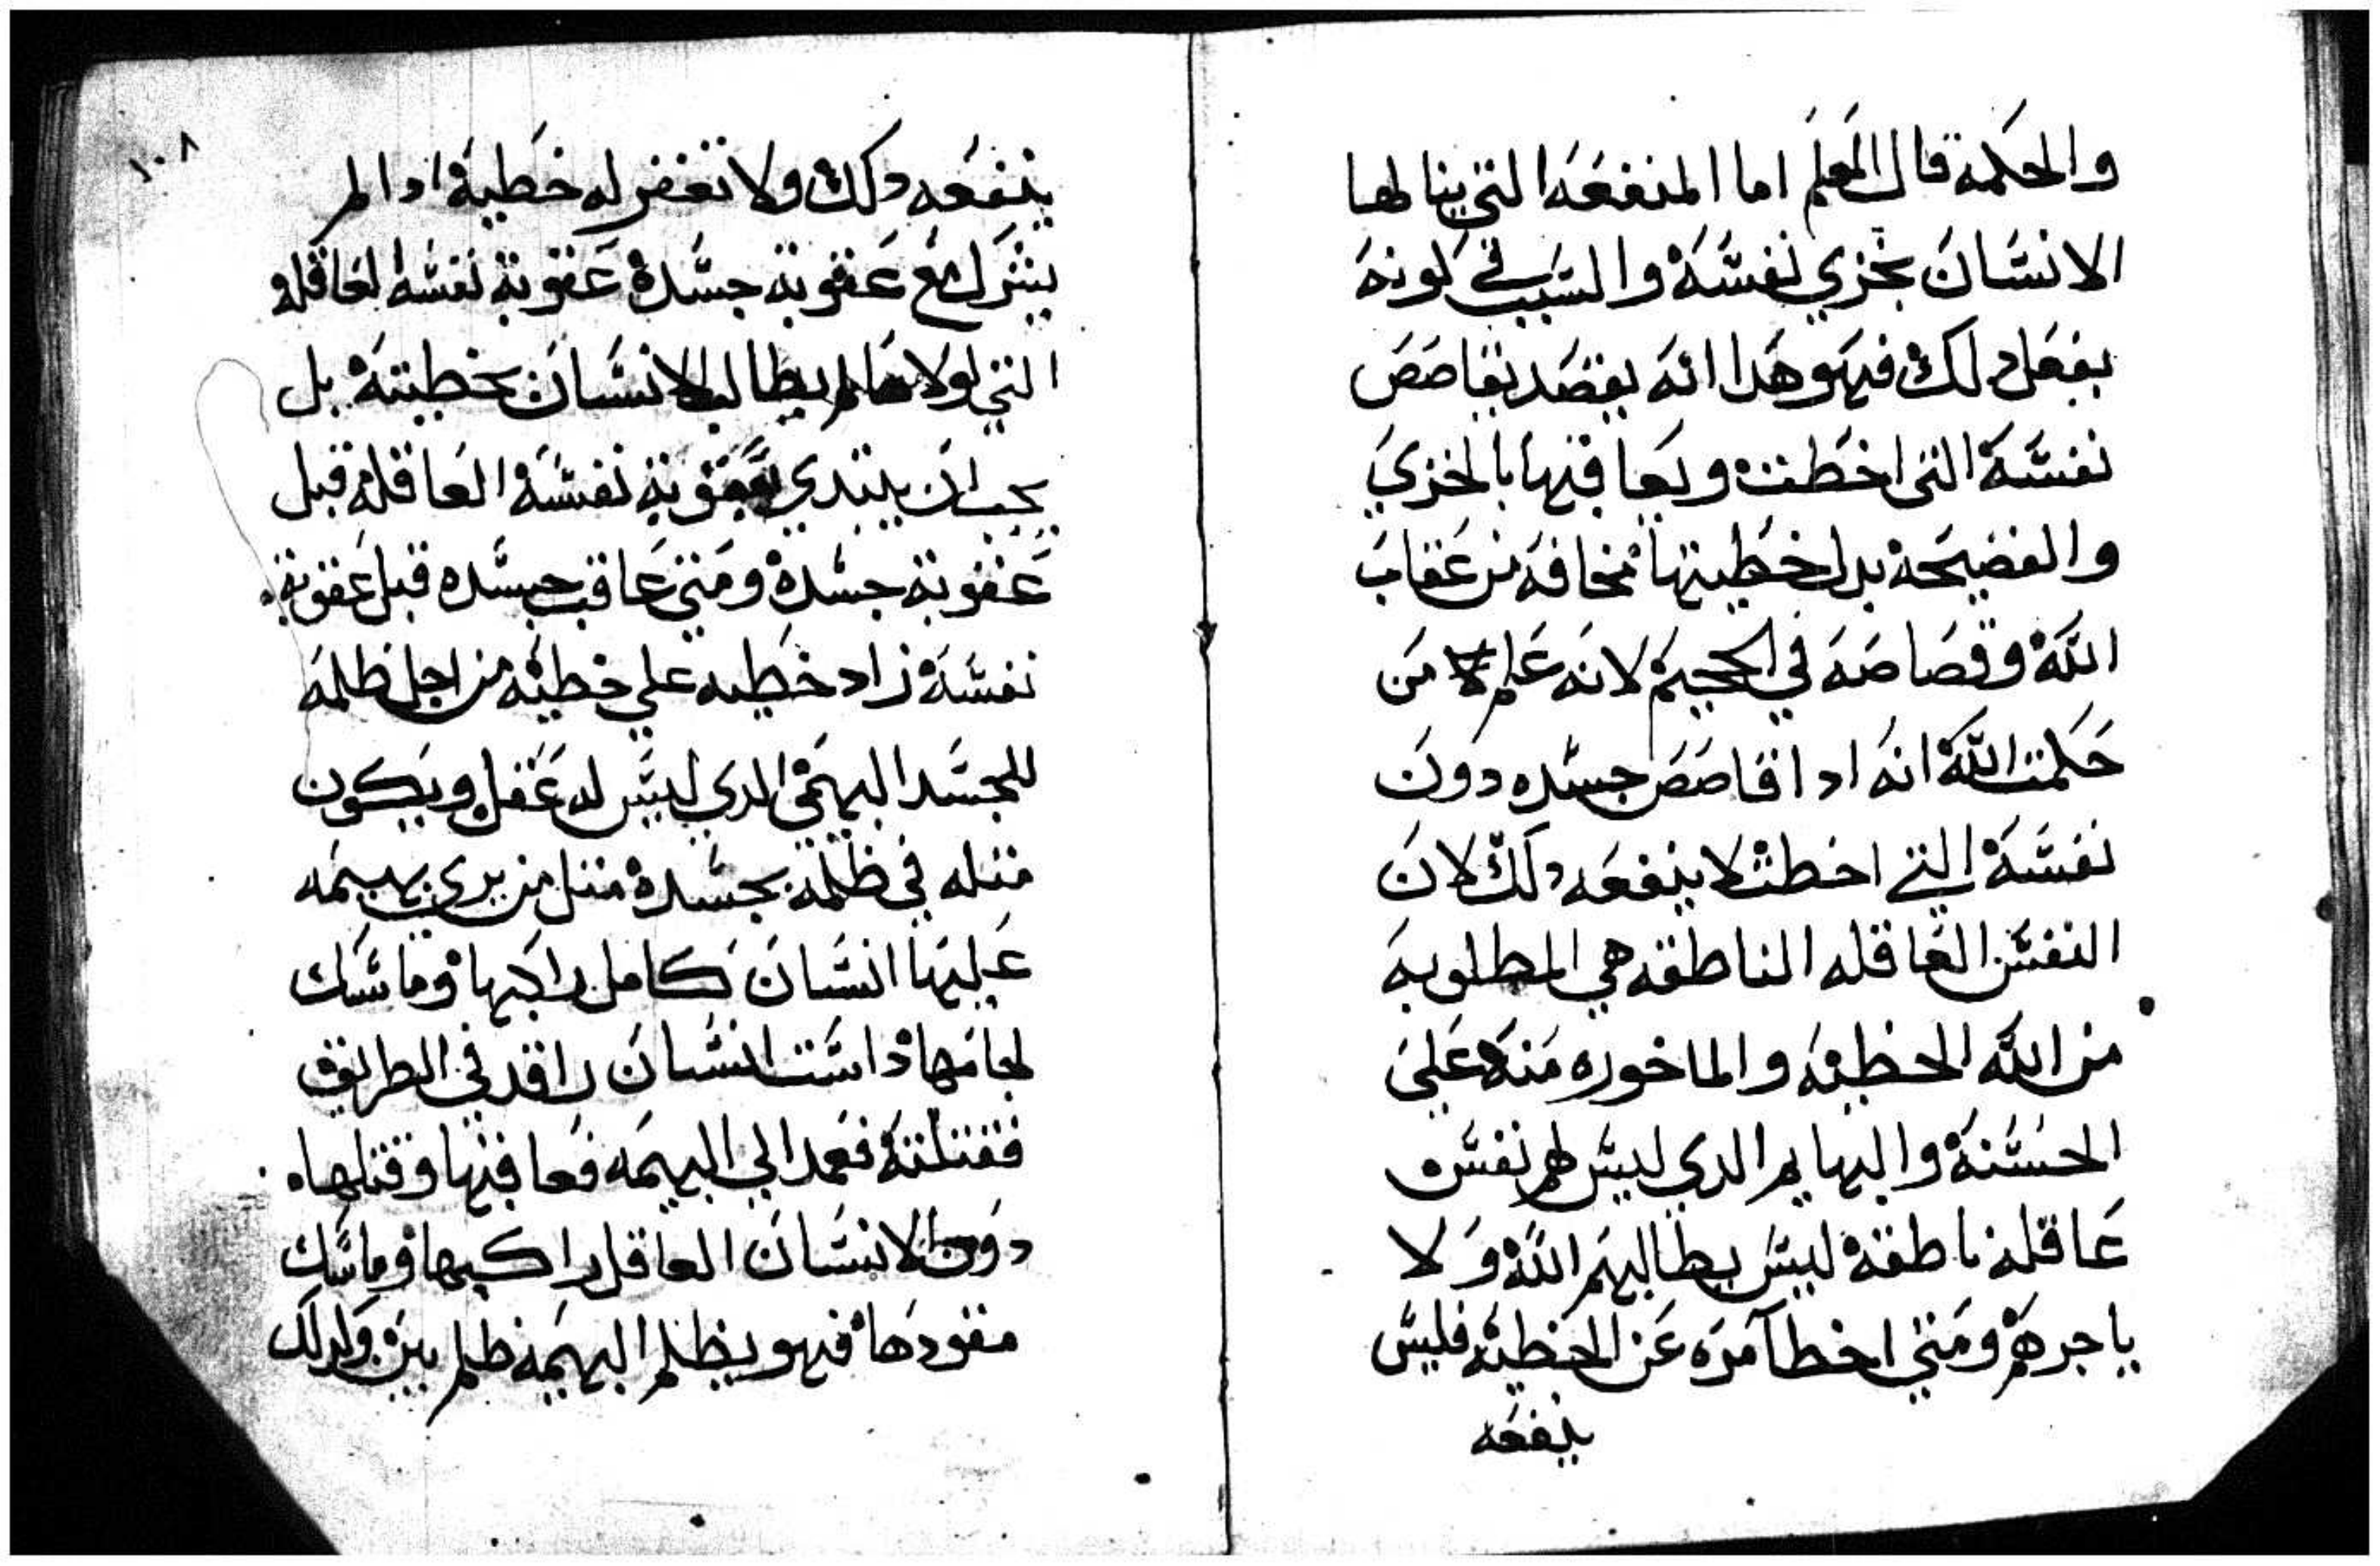 والحكمة قال المعلم اما المنفعه التي ينالها
الانسان بخزي نفسه والسبب في كونه
يفعل دلك فهو هدا انه يقصد يقاصص
نفسه التي اخطت ويعاقبها بالخزي
والفضيحه بدل خطيتها مخافه من عقاب
الله وقصاصه في الجحيم لانه علم من
حكمت الله انه ادا قاصص جسده دون
نفسه التي اخطت لا ينفعه دلك لان
النفس العاقله الناطقه هي المطلوبه
من الله الخطيه والماخوده منه علي
الحسنة والبهايم الدي ليس لهم نفس
عاقله ناطقه ليس يطالبهم الله ولا
ياجرهم ومتي اخطا امره عن الخطيه فليس
ينفعه
١٠٨
ينفعه دلك ولا تغفر له خطية ادا لم
يشرك مع عقوبة جسده عقوبة نفسه العاقله
التي لولاها لم يطالب الانسان بخطيته بل
يجب ان يبتدي بعقوبة نفسه العاقله قبل
عقوبة جسده ومتي عاقب جسده قبل عقوبة
نفسه زاد خطيه علي خطيه من اجل ظلمه
للجسد البهيمي الدي ليس له عقل ويكون
مثله في ظلمه بجسده مثل من يري بهيمه
عليها انسان كامل راكبها وماسك
لجامها داست انسان راقد في الطريق
فقتلته فعمد الي البهيمه فعاقبها وقتلها
دون الانسان العاقل راكبها وماسك
مقودها فهو يظلم البهيمه ظلم بين ولدلك